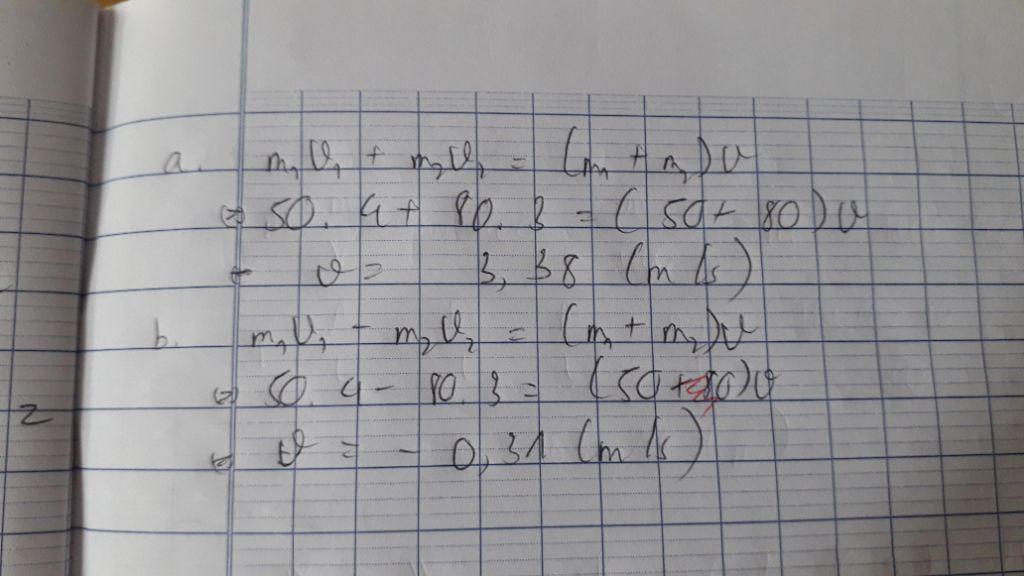 a. m₁v₁ + m₂v₂ = (m₁ + m₂)v
⇔ 50. 4 + 80. 3 = ( 50 + 80 )v
v = 3,38 (m/s)
b. m₁v₁ - m₂v₂ = (m₁ + m₂)v
⇔ 50. 4 - 80. 3 = (50 + 80)v
⇔ v = - 0,31 (m/s)
2